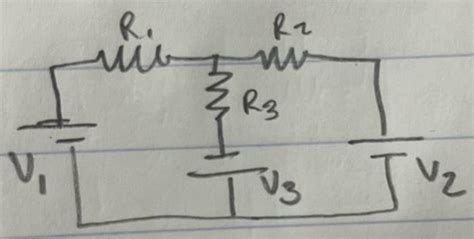 R₁ R₂
R₃
V₁ V₃ V₂